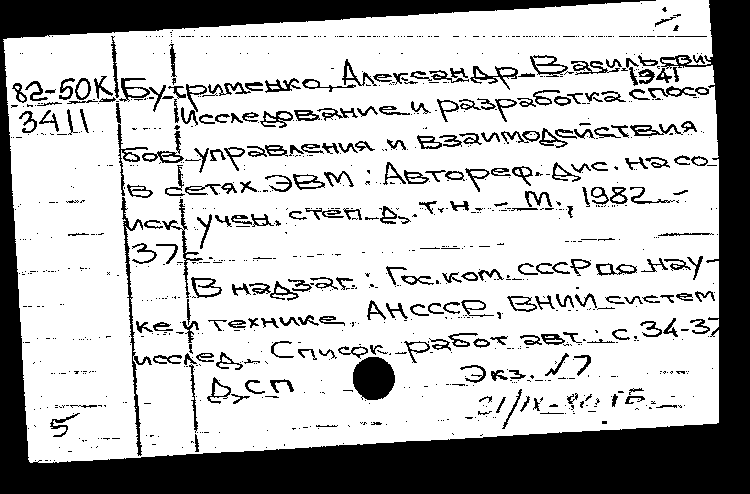 82-50К Бутрименко, Александр Васильевич
3411 1941
Исследование и разработка спосо-
бов управления и взаимодействия
в сетях ЭВМ : Автореф. дис. на со-
иск. учен. степ. д. т. н. - М., 1982 -
37 с
В надзаг : Гос. ком. СССР по нау-
ке и технике, АН СССР, ВНИИ систем
исслед. Список работ авт. : с. 34-37
ДСП Экз. №7
21/IX- ГБ.
5